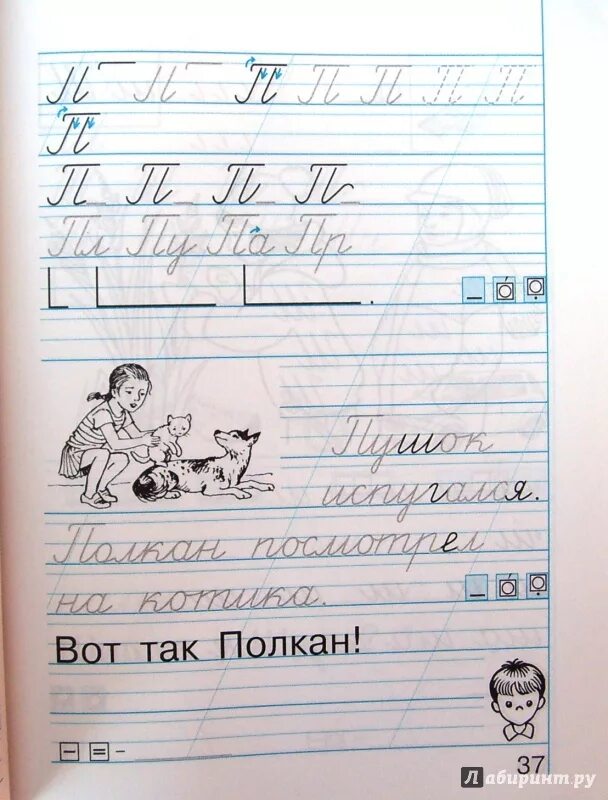 П П П П П П П
П
П П П П
Пл Пу Па Пр
Пушок
испугался.
Полкан посмотрел
на котика.
Вот так Полкан!
37
Лабиринт.ру